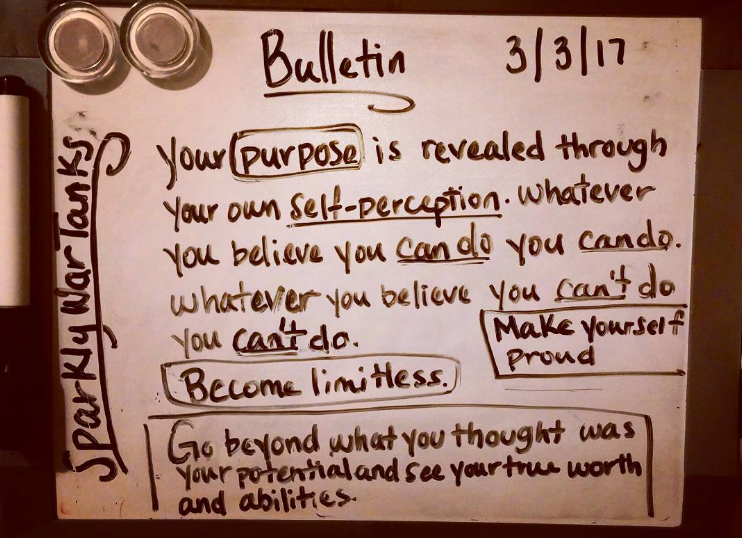 Bulletin 3/3/17
Sparkly War Tanks
Your purpose is revealed through
your own self-perception. Whatever
you believe you can do you can do.
Whatever you believe you can't do
you can't do.
Make yourself
proud
Become limitless.
Go beyond what you thought was
your potential and see your true worth
and abilities.